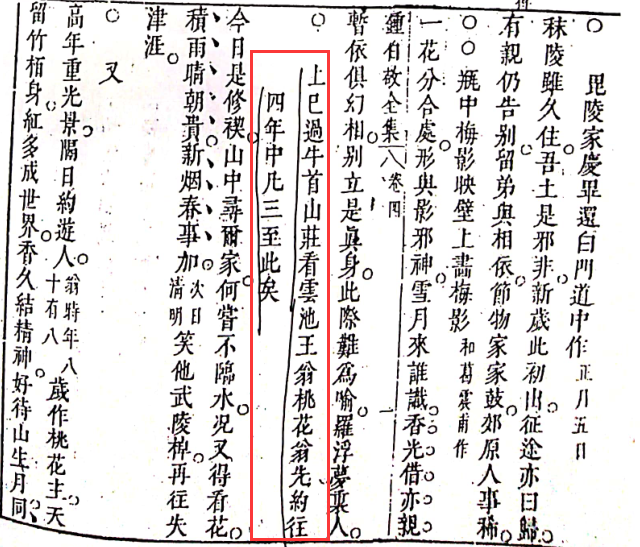 毘陵家慶畢還白門道中作正月五日
秣陵雖久住吾土是邪非新歲此初出征途亦曰歸
有親仍告别留弟與相依節物家家鼓郊原人事稀
瓶中梅影映壁上畵梅影和葛震甫作
一花分合處形與影邪神雪月來誰議香光借亦親
鍾伯敬全集八卷四
暫依俱幻相别立是眞身此際難爲喻羅浮夢裏人
上巳過牛首山莊看雲池王翁桃花翁先約往
四年中凡三至此矣
今日是修禊山中尋爾家何嘗不臨水況又得看花
積雨晴朝貴新烟春事加次日清明笑他武陵棹再往失
津涯
又
高年重光景隔日約遊人翁時年八十有八歲作桃花主天
留竹栢身紅多成世界香久結精神好待山生月同